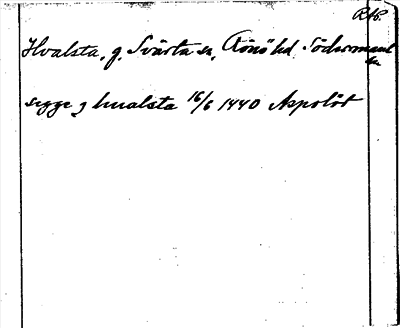 RAp.
Hvalsta, g. Svärta sn, Rönö hd, Södermanl
ln
segge j hualsta 16/6 1440 Aspolöt